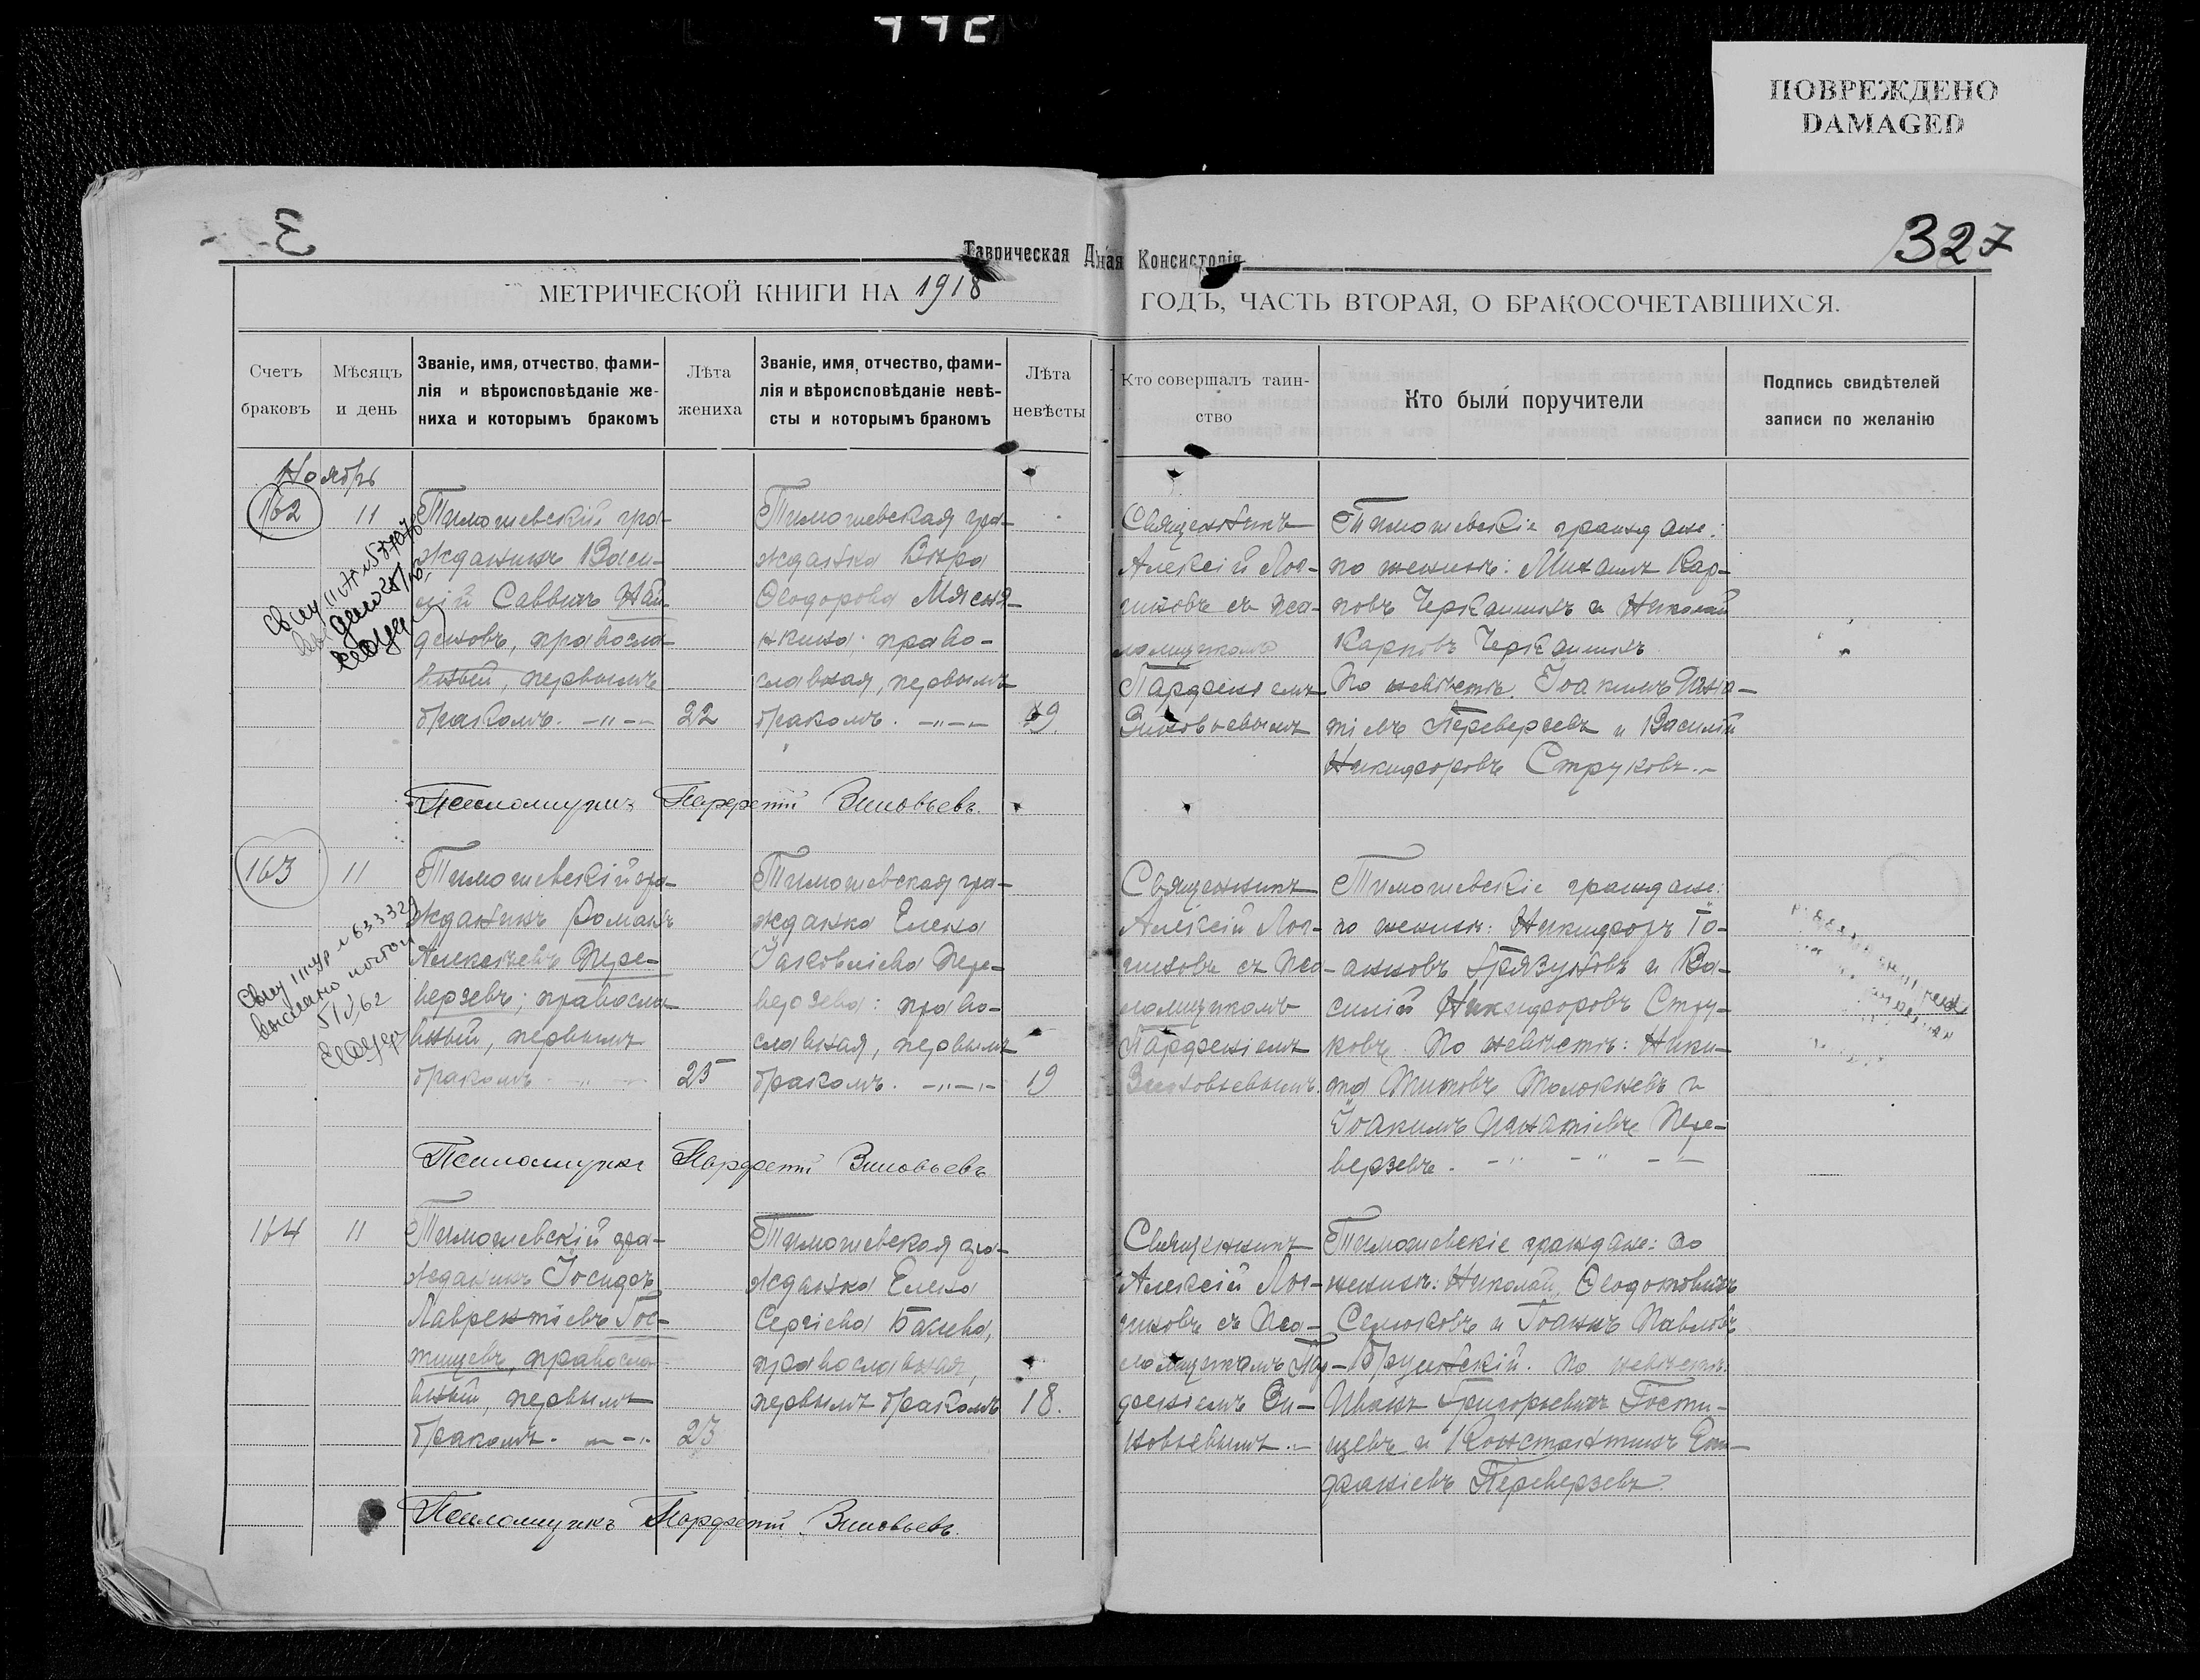 ПОВРЕЖДЕНО
DAMAGED
327
Таврическая Д ная Консисторія
МЕТРИЧЕСКОЙ КНИГИ НА 1918
ГОДЪ, ЧАСТЬ ВТОРАЯ, О БРАКОСОЧЕТАВШИХСЯ.
Счетъ
браковъ
Мѣсяцъ
и день
Званіе, имя, отчество, фами-
лія и вѣроисповѣданіе же-
ниха и которымъ бракомъ
Лѣта
жениха
Званіе, имя, отчество, фами-
лія и вѣроисповѣданіе невѣ-
сты и которымъ бракомъ
Лѣта
невѣсты
Кто совершалъ таин-
ство
Кто были поручители
Подпись свидѣтелей
записи по желанію
Ноябрь
162
11
Тимошевскій гра-
жданинъ Васи-
лій Саввинъ Най-
деновъ, правосла-
вный, первымъ
бракомъ.
22
Тимошевская гра-
жданка Вѣра
Ѳеодорова Мясня-
нкина: право-
славная, первымъ
бракомъ.
19.
Священникъ
Алексій Лог-
виновъ съ пса-
ломщикомъ
Парѳеніемъ
Зиновьевымъ
Тимошевскіе граждане:
по женихѣ: Михаилъ Кар-
повъ Черкашинъ и Николай
Карповъ Черкашинъ
По невѣстѣ Іоакимъ Игна-
тіевъ Переверзевъ и Василій
Никифоровъ Струковъ.
Псаломщикъ Парфеній Зиновьевъ.
163
11
Тимошевскій гра-
жданинъ Романъ
Алексѣевъ Пере-
верзевъ; правосла-
вный, первымъ
бракомъ
25
Тимошевская гра-
жданка Елена
Іаковлева Пере-
верзева: право-
славная, первымъ
бракомъ.
19
Священникъ
Алексій Лог-
виновъ съ Пса-
ломщикомъ
Парфеніемъ
Зиновьевымъ.
Тимошевскіе граждане:
по женихѣ: Никифоръ Іо-
анновъ Грязуновъ и Ва-
силій Никифоровъ Стру-
ковъ. По невѣстѣ: Ники-
та Титовъ Толокневъ и
Іоакимъ Игнатіевъ Пере-
верзевъ.
высланo почтой
Псаломщикъ Парфеній Зиновьевъ
164
11
Тимошевскій гра-
жданинъ Іосифъ
Лаврентіевъ Гос-
тищевъ, правосла-
вный, первымъ
бракомъ.
23
Тимошевская гра-
жданка Елена
Сергіева Бакаева,
православная,
первымъ бракомъ
18.
Священникъ
Алексій Лог-
виновъ съ Пса-
ломщикомъ Пар-
феніемъ Зи-
новьевымъ.
Тимошевскіе граждане: по
женихѣ: Николай Ѳеодотовичъ
Селюковъ и Іоаннъ Павловъ
По невѣстѣ:
Иванъ Григорьевичъ Гости-
щевъ и Константинъ Епи-
фаніевъ Переверзевъ.
Псаломщикъ Парфеній Зиновьевъ.